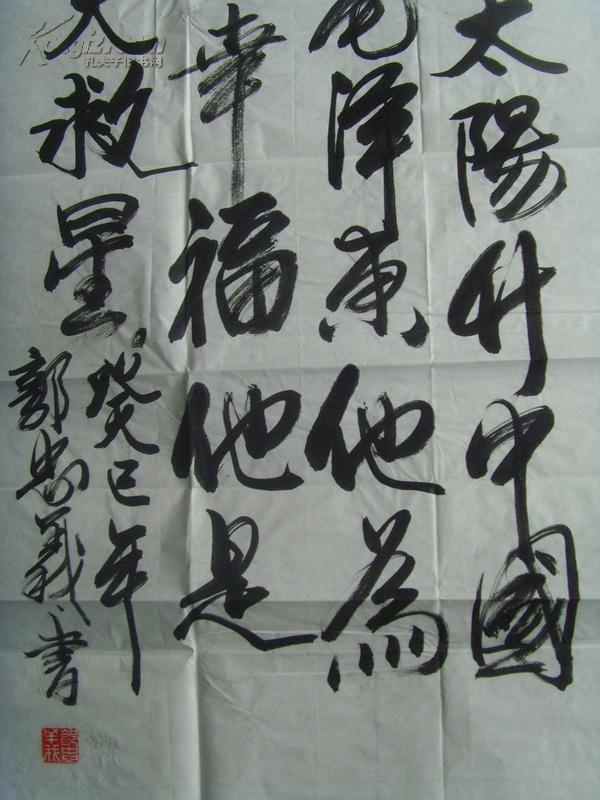 太陽升中國
毛泽东他為
幸福他是
大救星
癸巳年
郭忠義書
孔夫子旧书网